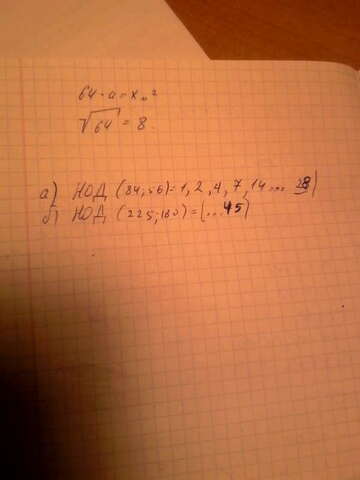 64 · a = x м²
√64 = 8
а) НОД (84;56)=1, 2, 4, 7, 14 ... 28)
б) НОД (225;180)=(...45)